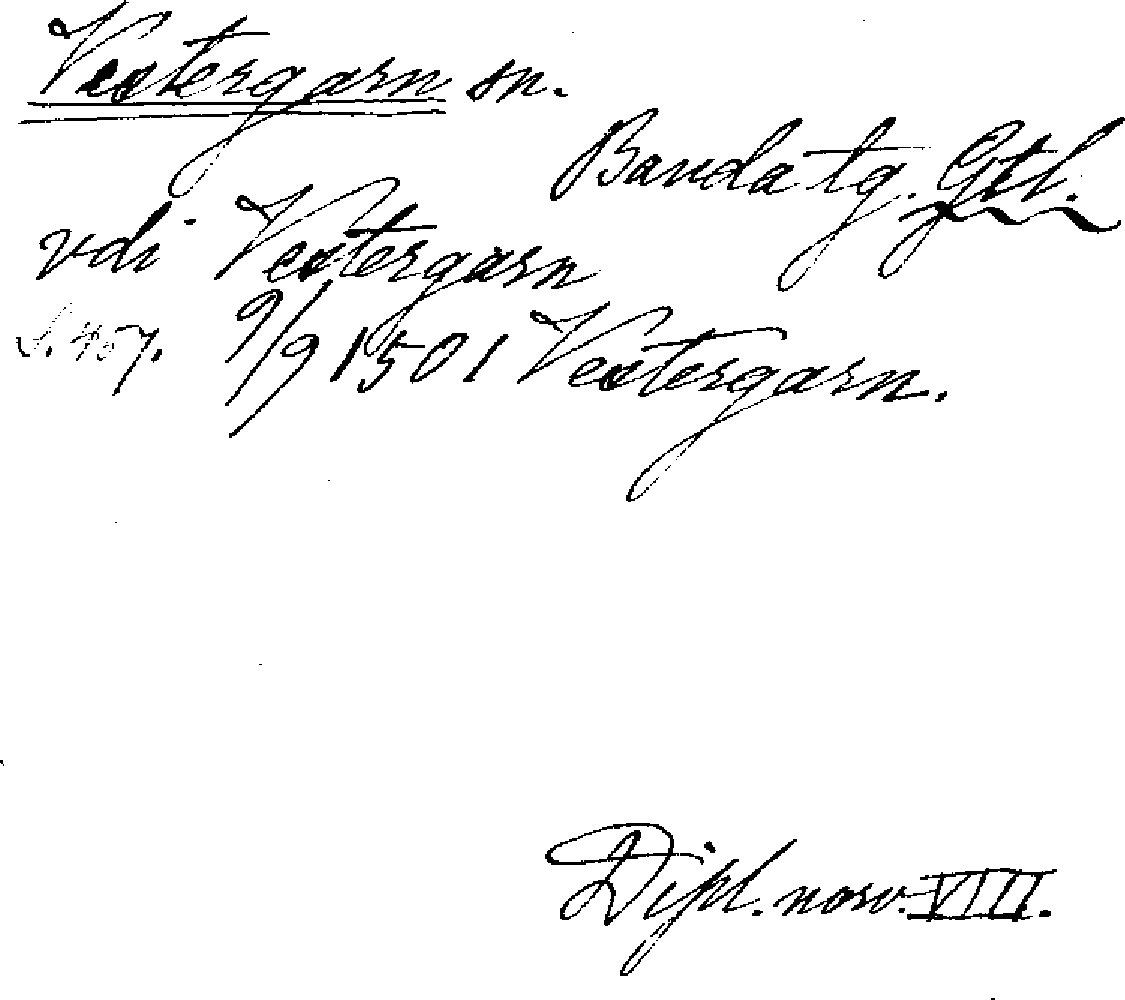 Vestergarn sn.
Banda tg. Gtl.
vdi Vestergarn
S. 457. 9/9 1501 Vestergarn.
Dipl. norv. VIII.